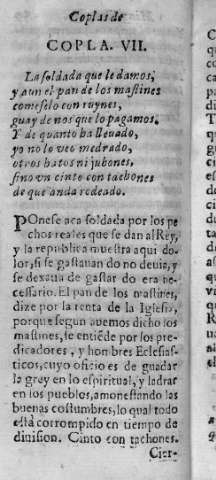 Coplas de
COPLA. VII.
La soldada que le damos,
y aun el pan de los mastines
comeselo con ruynes,
guay de nos que lo pagamos.
Y de quanto ha lleuado,
yo no lo veo medrado,
otros hatos ni jubones,
sino vn cinto con tachones
de que anda rodeado.
PONese aca soldada por los pe
chos reales que se dan al Rey,
y la republica muestra aqui do-
lor, si se gastauan do no deuia, y
se dexaua de gastar do era ne-
cessario. El pan de los mastines,
dize por la renta de la Iglesia,
porque segun auemos dicho los
mastines, se entiẽde por los pre-
dicadores, y hombres Eclesias-
ticos, cuyo oficio es de guadar
la grey en lo espiritual, y ladrar
en los pueblos, amonestando las
buenas costumbres, lo qual todo
està corrompido en tiempo de
diuision. Cinto con tachones.
Cier-